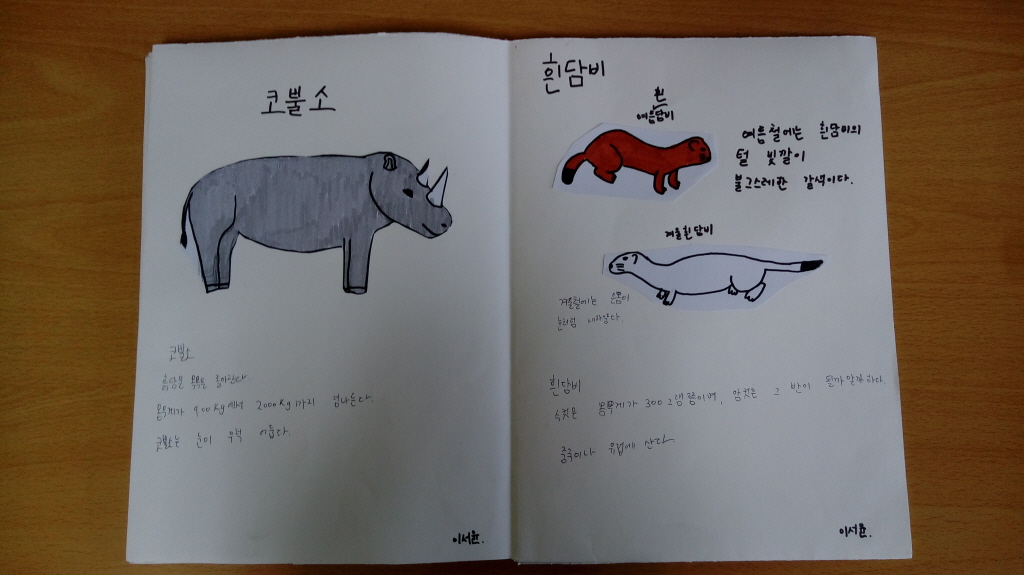 코뿔소
코뿔소
흙탕물 목욕을 좋아한다
몸무게가 900kg에서 2000kg까지 넘나든다.
코뿔소는 눈이 무척 어둡다.
이서윤.
흰담비
흰
여름담비
여름철에는 흰담비의
털 빛깔이
불그스레한 갈색이다.
겨울흰담비
겨울철에는 온몸이
눈처럼 새하얗다.
흰담비
수컷은 몸무게가 300그램쯤이며, 암컷은 그 반이 될까말까 하다.
중국이나 유럽에 산다
이서윤.